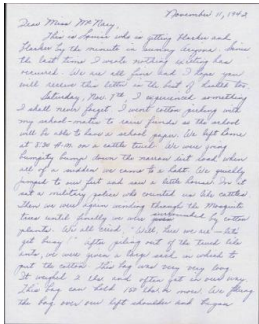 November 11, 1942
Dear Miss McNary,
This is Louise who is getting blacker and
blacker by the minute in sunny Arizona. Since
the last time I wrote nothing exciting has
occurred. We are all fine and I hope you
will receive this letter in the best of health too.
Saturday, Nov. 7th I experienced something
I shall never forget. I went cotton picking with
my school-mates to raise funds so the school
will be able to have a school paper. We left home
at 8:30 A.M. on a cattle truck. We were going
bumpity bump down the narrow dirt road when
all of a sudden we came to a halt. We quickly
jumped to our feet and saw a little house. In it
sat a military police who counted us like cattle.
Then we were again winding through the Mesquite
trees until finally we were surrounded by cotton
plants. We all cried "Well, here we are — let's
get busy!" After piling out of the truck like
ants, we were given a large sack in which to
put the cotton. This bag was very very long.
It weighed 2 lbs. and often got in our way.
This bag can hold 100 lbs. or more. We flung
the bag over our left shoulder and began